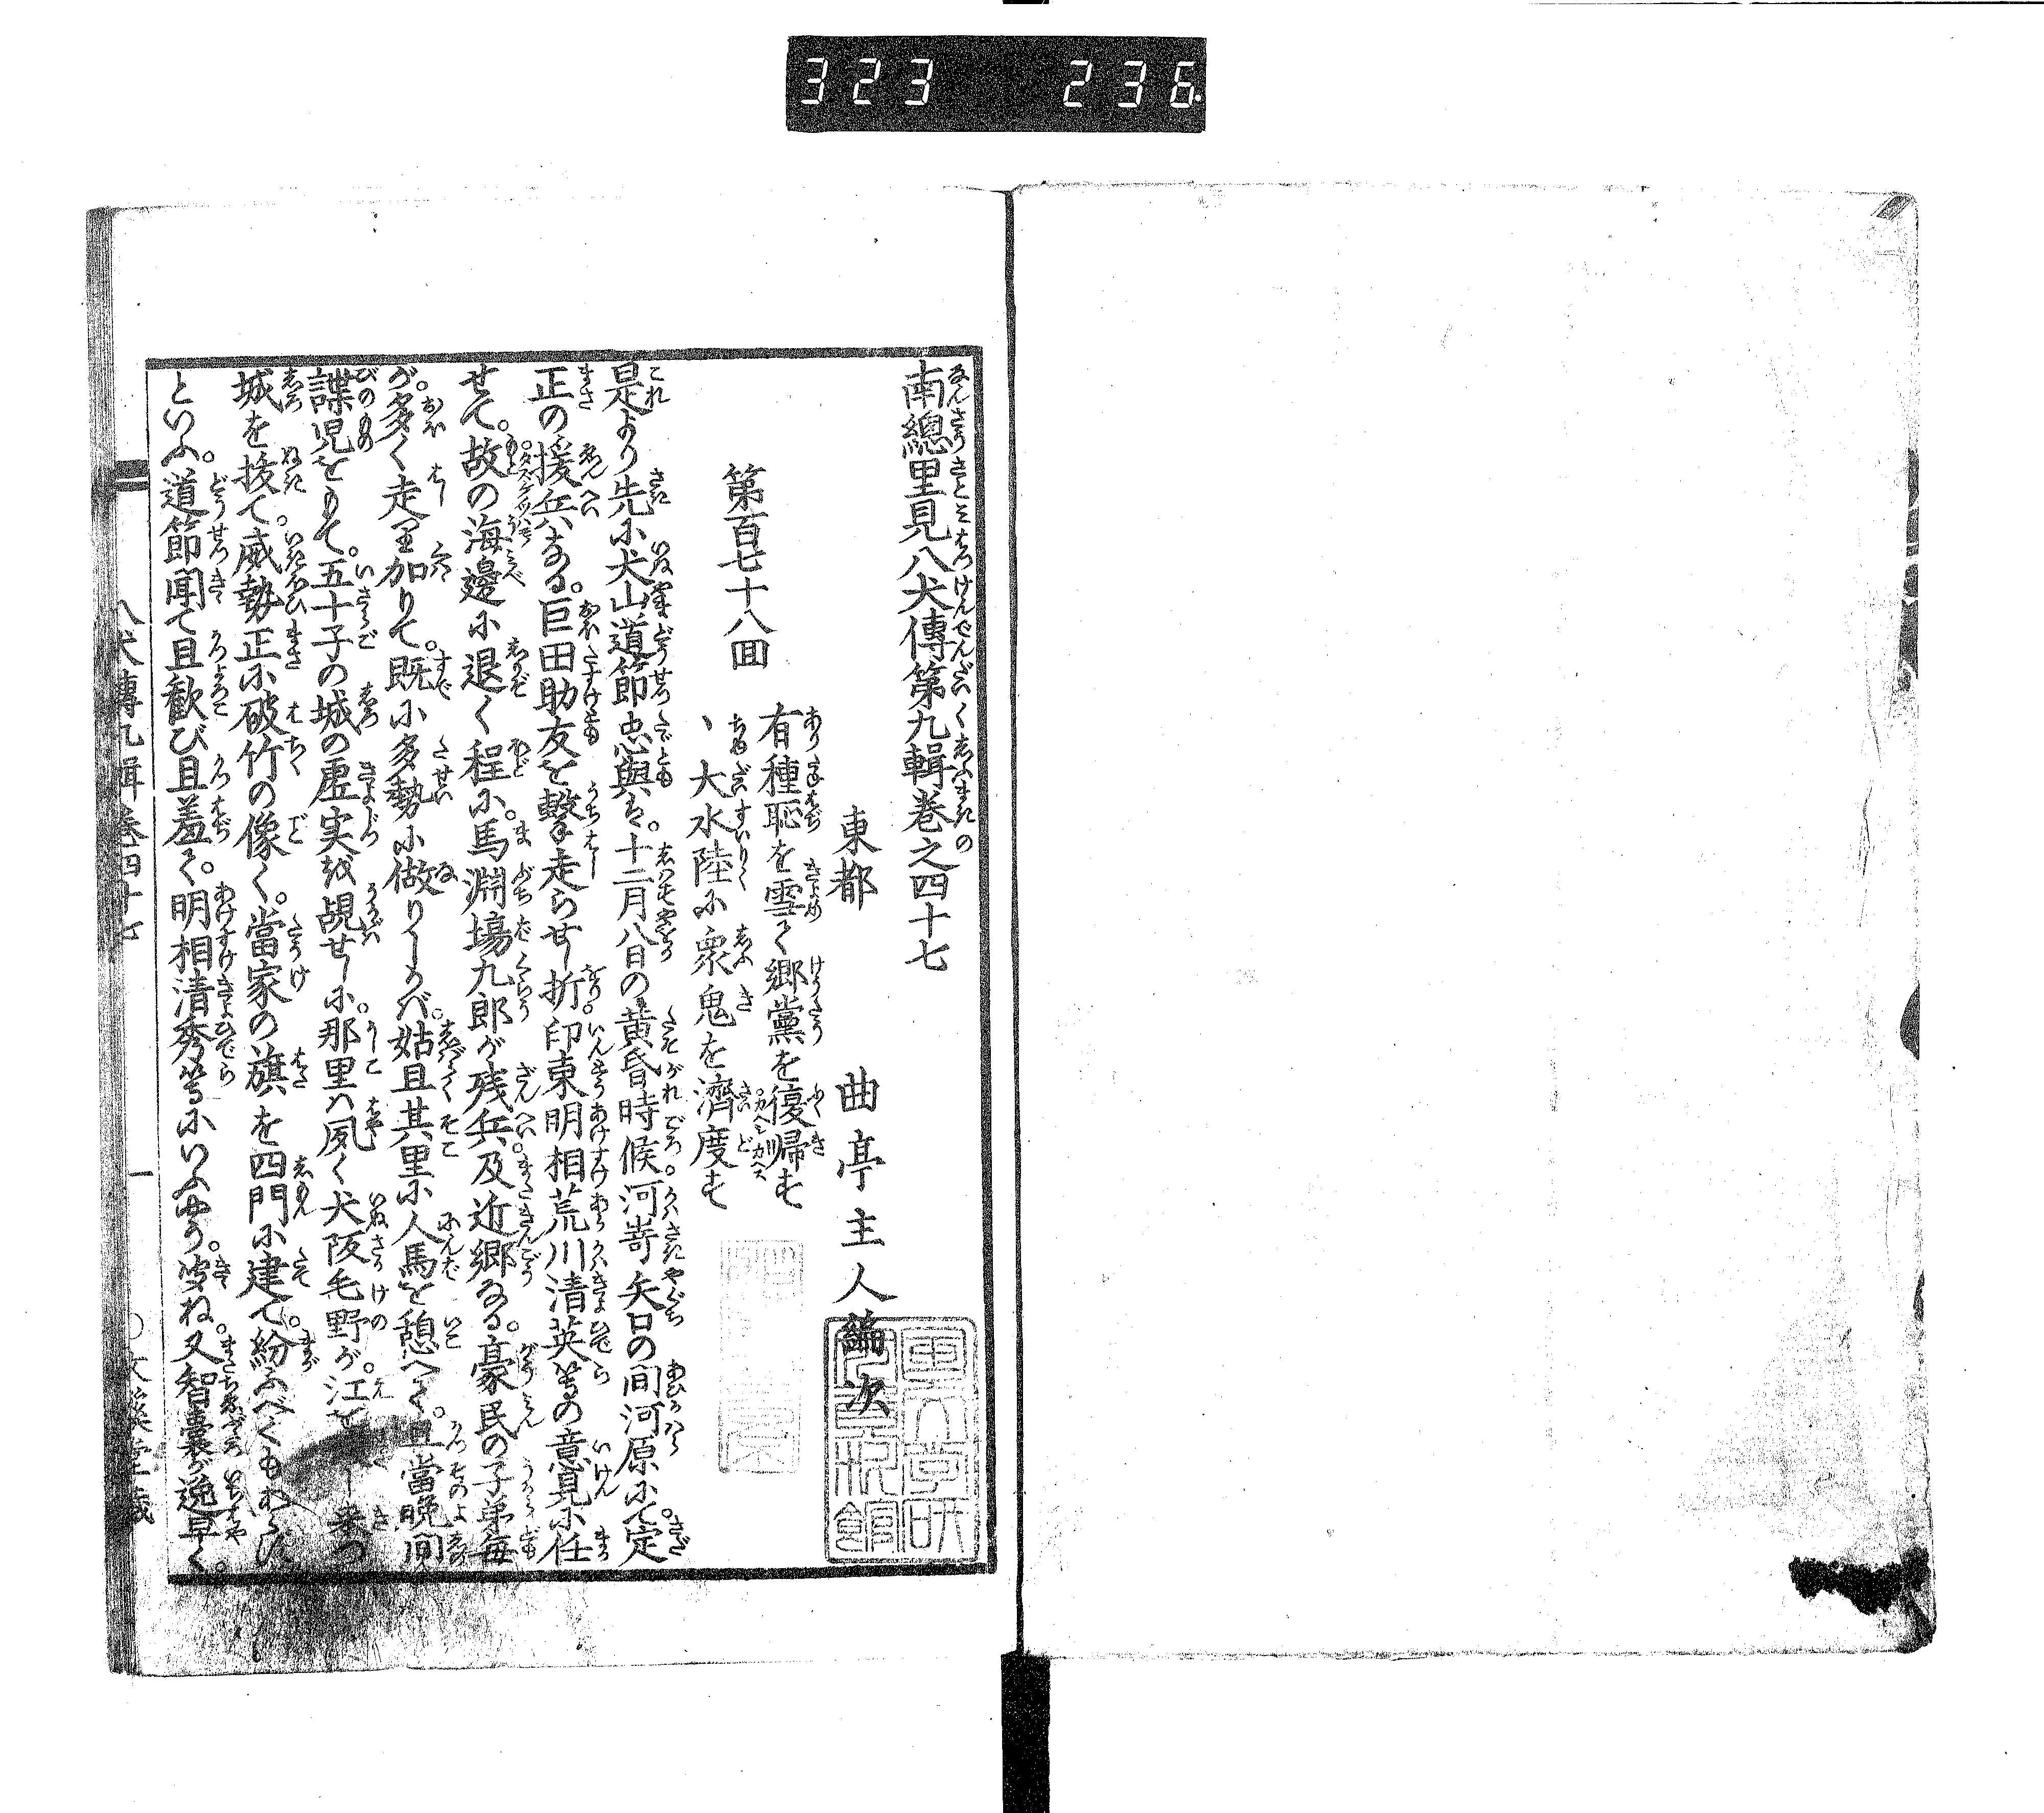 323 236
南總里見八犬傳第九輯巻之四十七
東都 曲亭主人編次
第百七十八回
有種恥を雪て郷黨を復歸す
丶大水陸に衆鬼を濟度す
是より先に犬山道節忠與は。十二月八日の黄昏時候。河嵜矢口の間河原にて。定
正の援兵なる。巨田助友を撃走らせし折。印東明相荒川清英等の意見に任
せて。故の海邊に退く程に。馬淵場九郎が残兵。及近郷なる。豪民の子弟毎
が。多く走り加りて。既に多勢に做りしかバ。姑且其里に人馬を憩へて。且當晩間
諜児をもて。五十子の城の虚実を覘せしに。那里ハ夙く犬阪毛野が。江を し来つ
城を抜て威勢正に破竹の像く。當家の旗を四門に建て。紛ふべくもあらず
といふ。道節聞て且歓び且羞て。明相清秀等にいふやう。 ね。又智嚢が逸早く。
八犬傳九輯巻四十七
一